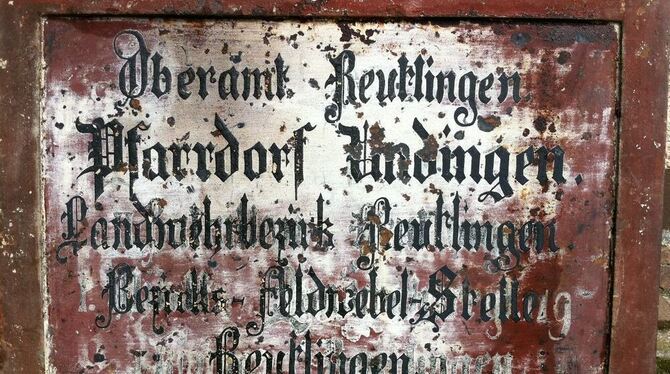 Oberamt Reutlingen
Pfarrdorf Undingen.
Landwehrbezirk Reutlingen.
Bezirks-Feldwebel-Stelle
Reutlingen